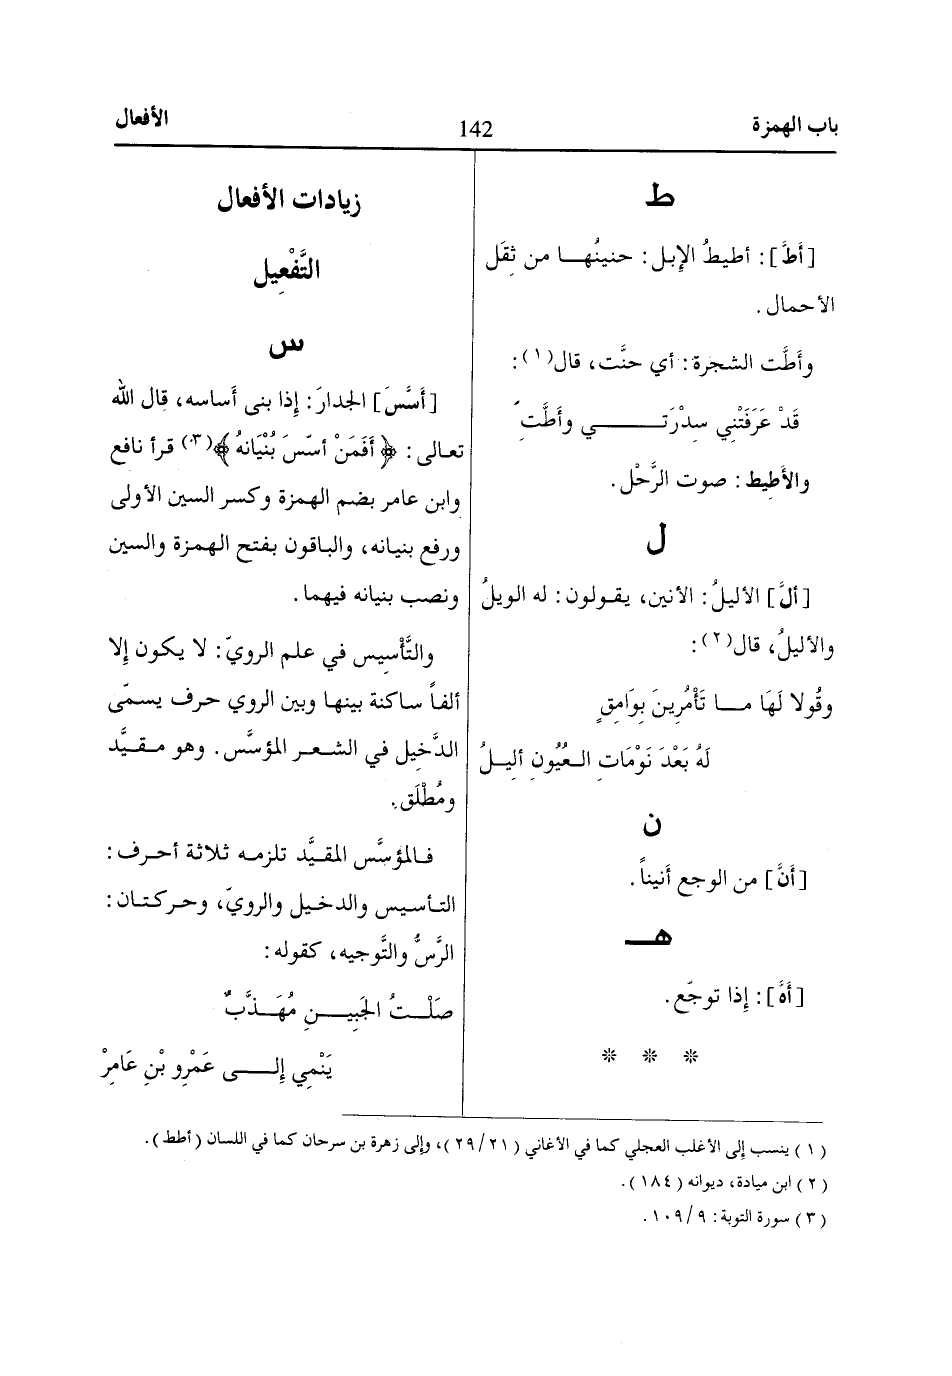 باب الهمزة
142
الأفعال
ط
[أطَّ]: أطيطُ الإبل: حنينُهـا من ثِقَل
الأحمال.
وأَطَّت الشجرة: أي حنَّت، قال(١):
قَدْ عَرَفَتْنِي سِدْرَتِي وأَطَّتِ
والأَطِيط: صوت الرَّحْل.
ل
[ألَّ] الأليلُ: الأنين، يقولون: له الويلُ
والأليلُ، قال(٢):
وقُولا لَهَا مـا تَأْمُرِينَ بِوَامِقٍ
لَهُ بَعْدَ نَوْمَاتِ العُيُونِ أليلُ
ن
[أنَّ] من الوجع أنيناً.
هـ
[أهَّ]: إذا توجّع.
* * *
زيادات الأفعال
التَّفْعِيل
س
[أسَّسَ] الجدارَ: إذا بنى أساسه، قال الله
تعالى: ﴿أَفَمَنْ أسّسَ بُنْيَانهُ﴾(٣) قرأ نافع
وابن عامر بضم الهمزة وكسر السين الأولى
ورفع بنيانه، والباقون بفتح الهمزة والسين
ونصب بنيانه فيهما.
والتَّأْسِيس في علم الرويّ: لا يكون إلا
ألفاً ساكنة بينها وبين الروي حرف يسمّى
الدَّخِيل في الشعر المؤسَّس. وهو مقيَّد
ومُطْلَق.
فالمؤسَّس المقيَّد تلزمه ثلاثة أحرف:
التأسيس والدخيل والرويّ، وحركتان:
الرَّسُّ والتَّوجيه، كقوله:
صَلْتُ الجَبِينِ مُهَذَّبٌ
يَنْمِي إلى عَمْرِو بْنِ عَامِرْ
(١) ينسب إلى الأغلب العجلي كما في الأغاني (٢٩/٢١)، وإلى زهرة بن سرحان كما في اللسان (أطط).
(٢) ابن ميادة، ديوانه (١٨٤).
(٣) سورة التوبة: ١٠٩/٩.